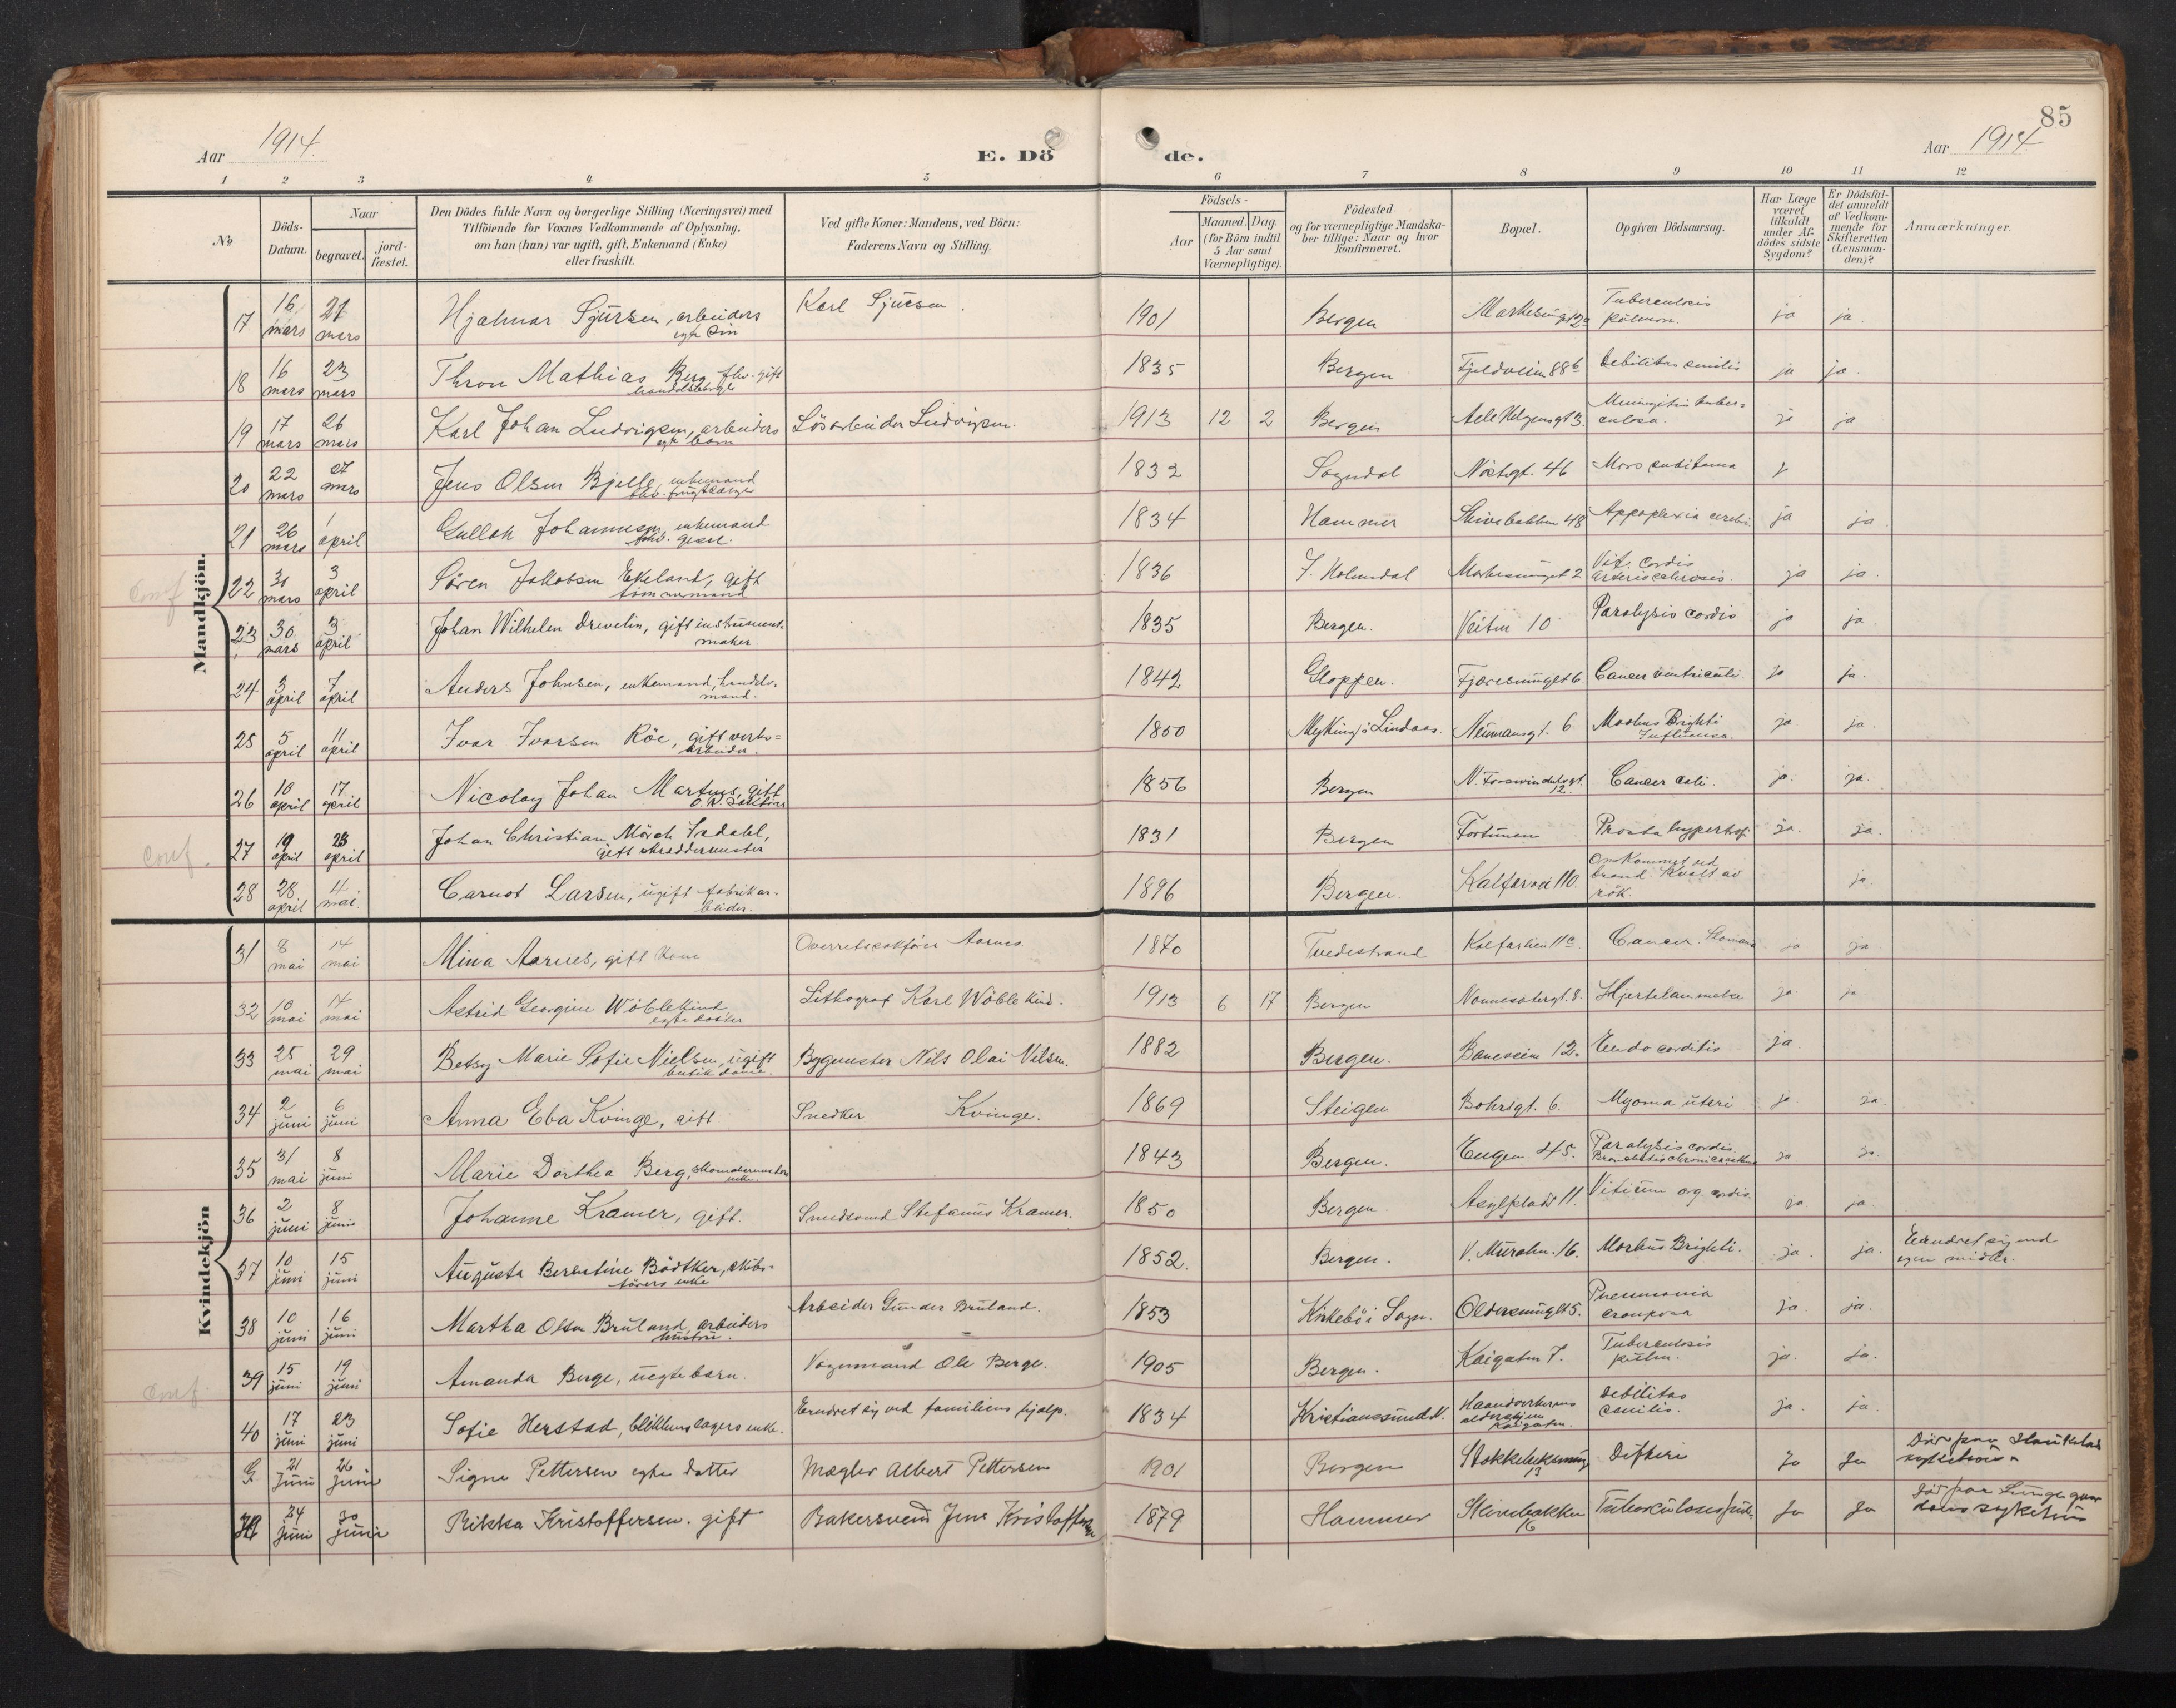 85
Aar 1914.
E. Döde.
Aar 1914.
1 2 3 4 5 6 7 8 9 10 11 12
No
Döds-Datum.
Naar
begravet.
jordfæstet.
Den Dödes fulde Navn og borgerlige Stilling (Næringsvei) med
Tilföiende for Voxnes Vedkommende af Oplysning,
om han (hun) var ugift, gift, Enkemand (Enke)
eller fraskilt.
Ved gifte Koner: Mandens, ved Börn:
Faderens Navn og Stilling.
Födsels-
Aar
Maaned. Dag.
(for Börn indtil
5 Aar samt
Værnepligtige).
Födested
og for værnepligtige Mandskaber tillige: Naar og hvor
konfirmeret.
Bopæl.
Opgiven Dödsaarsag.
Har Læge
været
tilkaldt
under Afdödes sidste
Sygdom?
Er Dödsfaldet anmeldt
af Vedkommende for
Skifteretten
(Lensmanden)?
Anmærkninger.
Mandkjön.
17 16 mars 21 mars Hjalmar Sjursen, arbeiders egte sön Karl Sjursen. 1901 Bergen Tuberculosis pulmon. ja ja.
18 16 mars 23 mars Thron Mathias Berg, fhv. gift handelsborger 1835 Bergen Fjeldveien 88b Debilitas senilis ja ja.
19 17 mars 26 mars Karl Johan Ludvigsen, arbeiders egte barn Lösarbeider Ludvigsen. 1913 12 2 Bergen Meningitis tuberculosa. ja ja
20 22 mars 27 mars Jens Olsen Bjelle, enkemand fhv. frugtsælger 1832 Sogndal Nöstegt. 46 Mors subitanea
21 26 mars 1 april Gullak Johannesen, enkemand 1834 Hammer Skivebakken 48 Appoplexia cerebri ja ja.
conf
22 30 mars 3 april Sören Jakobsen Ekeland, gift tömmermand 1836 Y. Holmedal 2 Vit. cordis arteriosclerosis. ja ja.
23 30 mars 3 april Johan Wilhelm Drevelin, gift instrumentmaker 1835 Bergen. Veiten 10 Paralysis cordis ja ja
24 3 april 7 april Anders Johnsen, enkemand, handelsmand. 1842 Gloppen. Cancer ventriculi. ja ja.
25 5 april 11 april Ivar Ivarsen Röe, gift verksarbeider. 1850 Myking i Lindaas. Neumansgt. 6 Morbus Brighti Influensa. ja ja.
26 10 april 17. april Nicolay Johan Martens, gift O. R. Sakförer 1856 Bergen 12. Cancer coli. ja. ja.
conf.
27 19 april 23 april Johan Christian Mörch Isdahl, gift skreddermester 1831 Bergen Fortunen Prosta hypertrof. ja. ja.
28 28 april 4 mai. Carnot Larsen, ugift fabrikarbeider. 1896 Bergen. Kalfarvei 110. Omkommet ved brand Kvalt av rök. ja.
Kvindekjön
31 8 mai 14 mai Mina Aarnes, gift kone Overretssakförer Aarnes 1870 Tvedestrand Kalfarlien 11c Cancer. ja ja
32 10 mai 14 mai Astrid Georgine Wöblekind egte datter Lithograf Karl Wöblekind. 1913 6 17 Bergen Nonnesetergt. 8. Hjertelammelse ja ja
33 25 mai 29 mai Betsy Marie Sofie Nielsen, ugift butikdame. Bygmester Nils Olai Nilsen. 1882 Bergen. Baneveien 12. Endocarditis ja.
34 2 juni 6 juni Anna Eba Kvinge, gift Snedker Kvinge. 1869 Steigen Bohrsgt. 6. Myoma uteri ja. ja.
35 31 mai 8 juni Marie Dorthea Berg, skomakermesters enke. 1843 Bergen. Engen 45. Paralysis cordis. ja ja.
36 2 juni 8 juni Johanne Kramer, gift. Smedsvend Stefanus Kramer. 1850 Bergen. Asylplads 11. Vitium org. cordis. ja. ja.
37 10 juni 15 juni Augusta Berentine Bödtker, skibsförers enke 1852. Bergen. V. Muralm. 16. Morbus Brighti. ja. ja. Ernæret sig med egne midler.
38 10 juni 16 juni Martha Olsen Bruland, arbeiders hustru. Arbeider Gunder Bruland. 1853 Kirkebö i Sogn. Pneumonia crouposa ja. ja.
conf.
39 15 juni 19 juni Amanda Berge, uegte barn. Vognmand Ole Berge. 1905 Bergen. Kaigaten 7. Tuberculosis pulm. ja. ja.
40 17 juni 23 juni Sofie Herstad, blikkenslagers enke. Ernæret sig ved familiens hjælp. 1834 Kristianssund N. Haandverkernes aldershjem Kaigaten. Debilitas senilis. ja. ja.
21 Juni 26 Juni Signe Pettersen egte datter Mægler Albert Pettersen 1901 Bergen 13 Difteri Ja Ja
24 Juni 30 Juni Rikka Kristoffersen. gift Bakersvend Jens Kristoffersen 1879 Hammer Skivebakken 16 Tuberculosis pulm. Ja Ja Död paa Lungegaardens sykehus